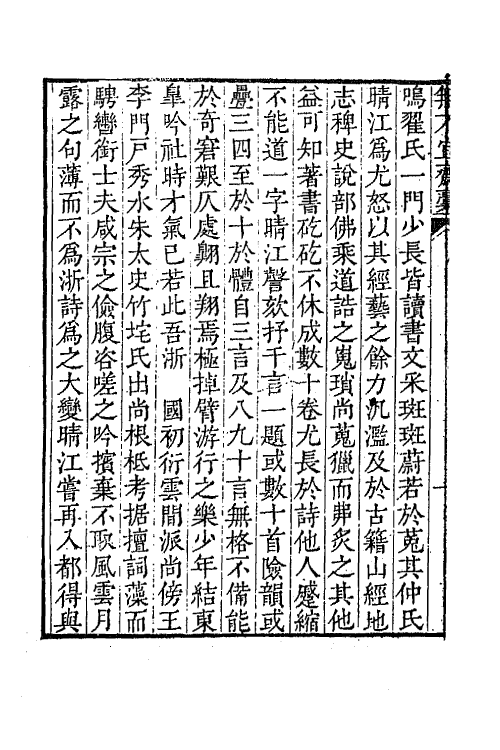 無不宜齋藁
嗚翟氏一門少長皆讀書文采斑斑蔚若於菟其仲氏
晴江爲尤怒以其經藝之餘力沉濫及於古籍山經地
志稗史說部佛乘道誥之嵬瑣尚蒐獵而羿炙之其他
益可知著書矻矻不休成數十卷尤長於詩他人蹙縮
不能道一字晴江聲欬抒千言一題或數十首險韻或
疊三四至於十於體自三言及八九十言無格不備能
於奇窘艱仄處翺且翔焉極掉臂游行之樂少年結東
臯吟社時才氣已若此吾浙　國初衍雲間派尚傍王
李門戸秀水朱太史竹垞氏出尚根柢考据擅詞藻而
騁轡銜士夫咸宗之儉腹咨嗟之吟擯棄不取風雲月
露之句薄而不爲浙詩爲之大變晴江嘗再入都得與